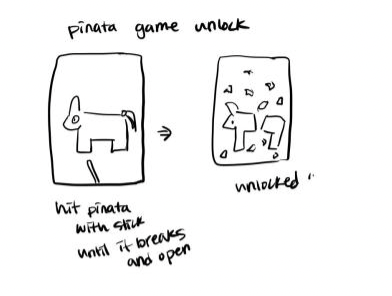 pinata game unlock
hit pinata
with stick
until it breaks
and open
unlocked